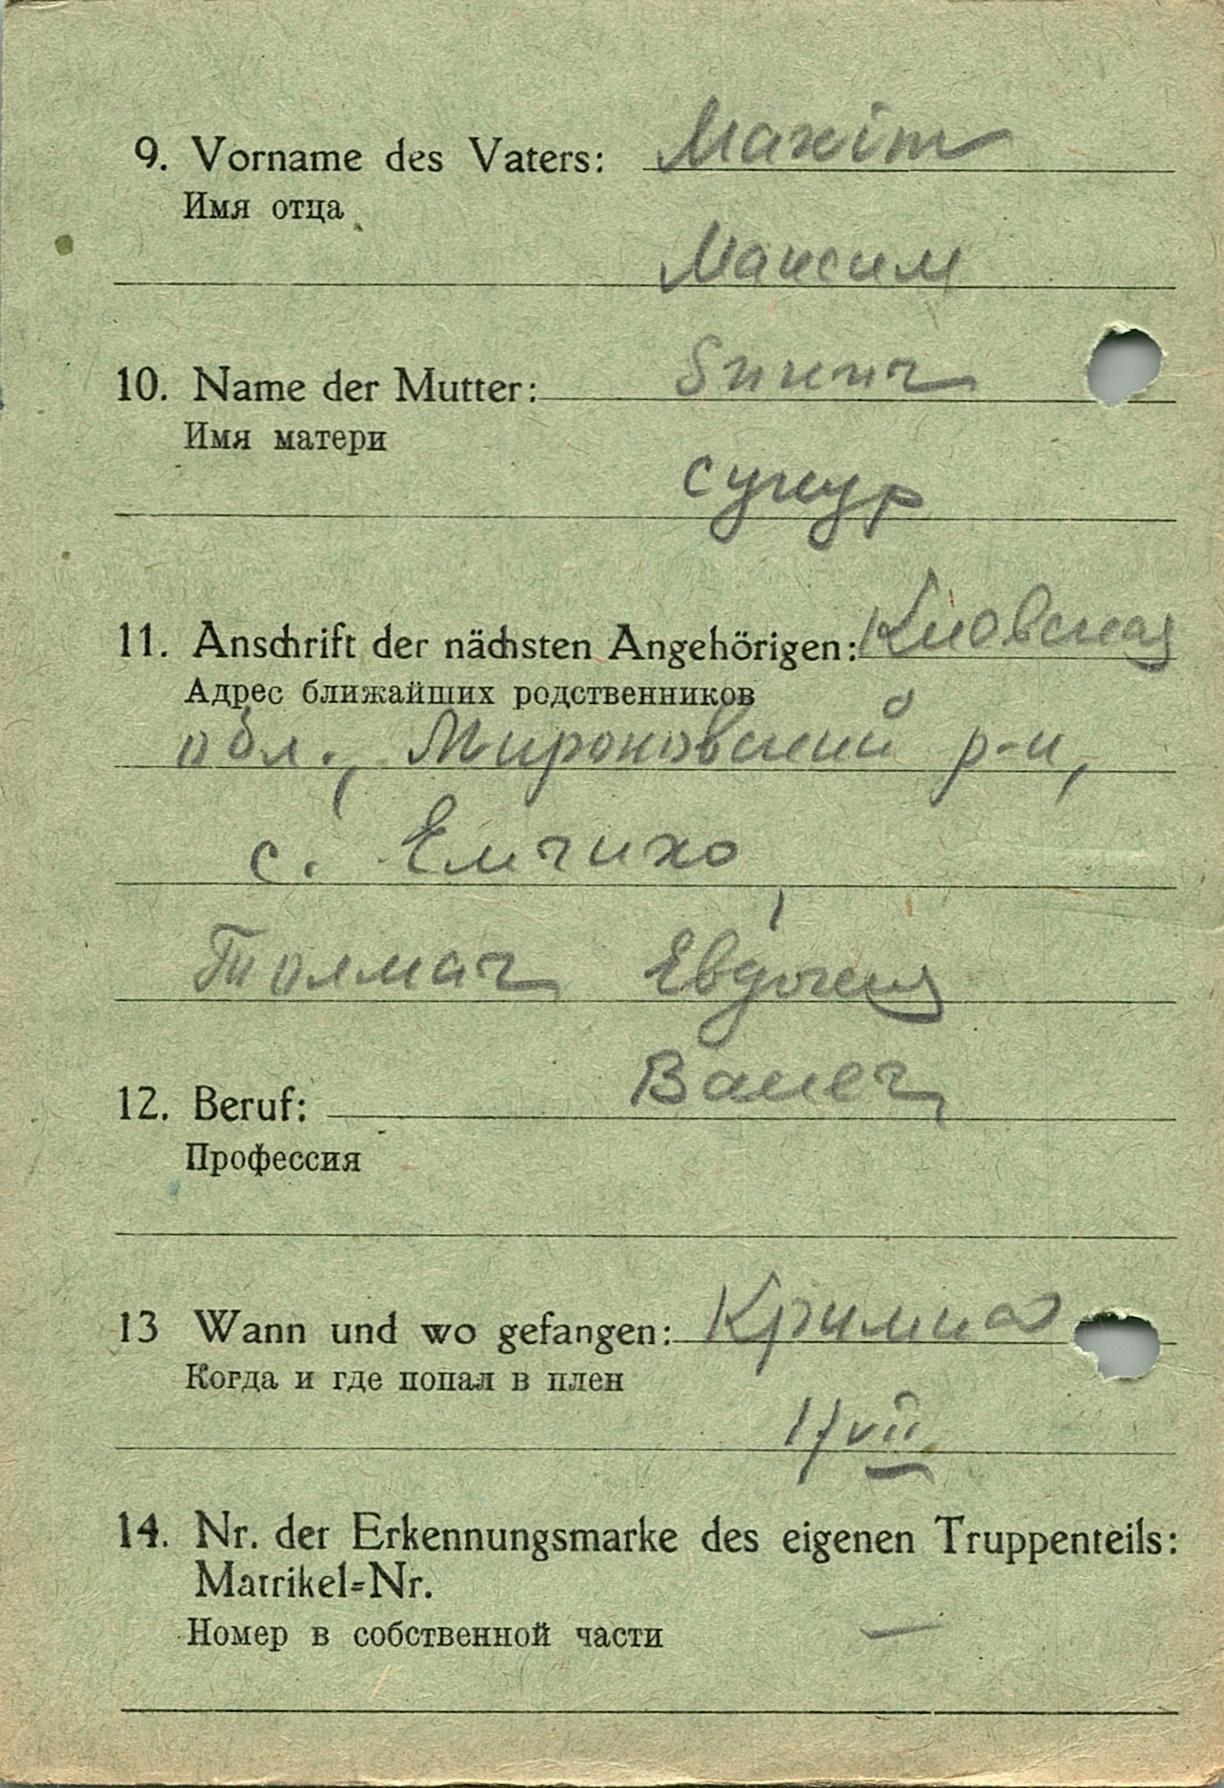 9. Vorname des Vaters: Maxim
Имя отца
Максим
10. Name der Mutter:
Имя матери
11. Anschrift der nächsten Angehörigen: Киовская
Адрес ближайших родственников
обл., Мироновский р-н,
с. Емчихо
Толмач Евдокия
12. Beruf:
Профессия
13 Wann und wo gefangen:
Когда и где попал в плен
17 VII
14. Nr. der Erkennungsmarke des eigenen Truppenteils:
Matrikel-Nr.
Номер в собственной части —